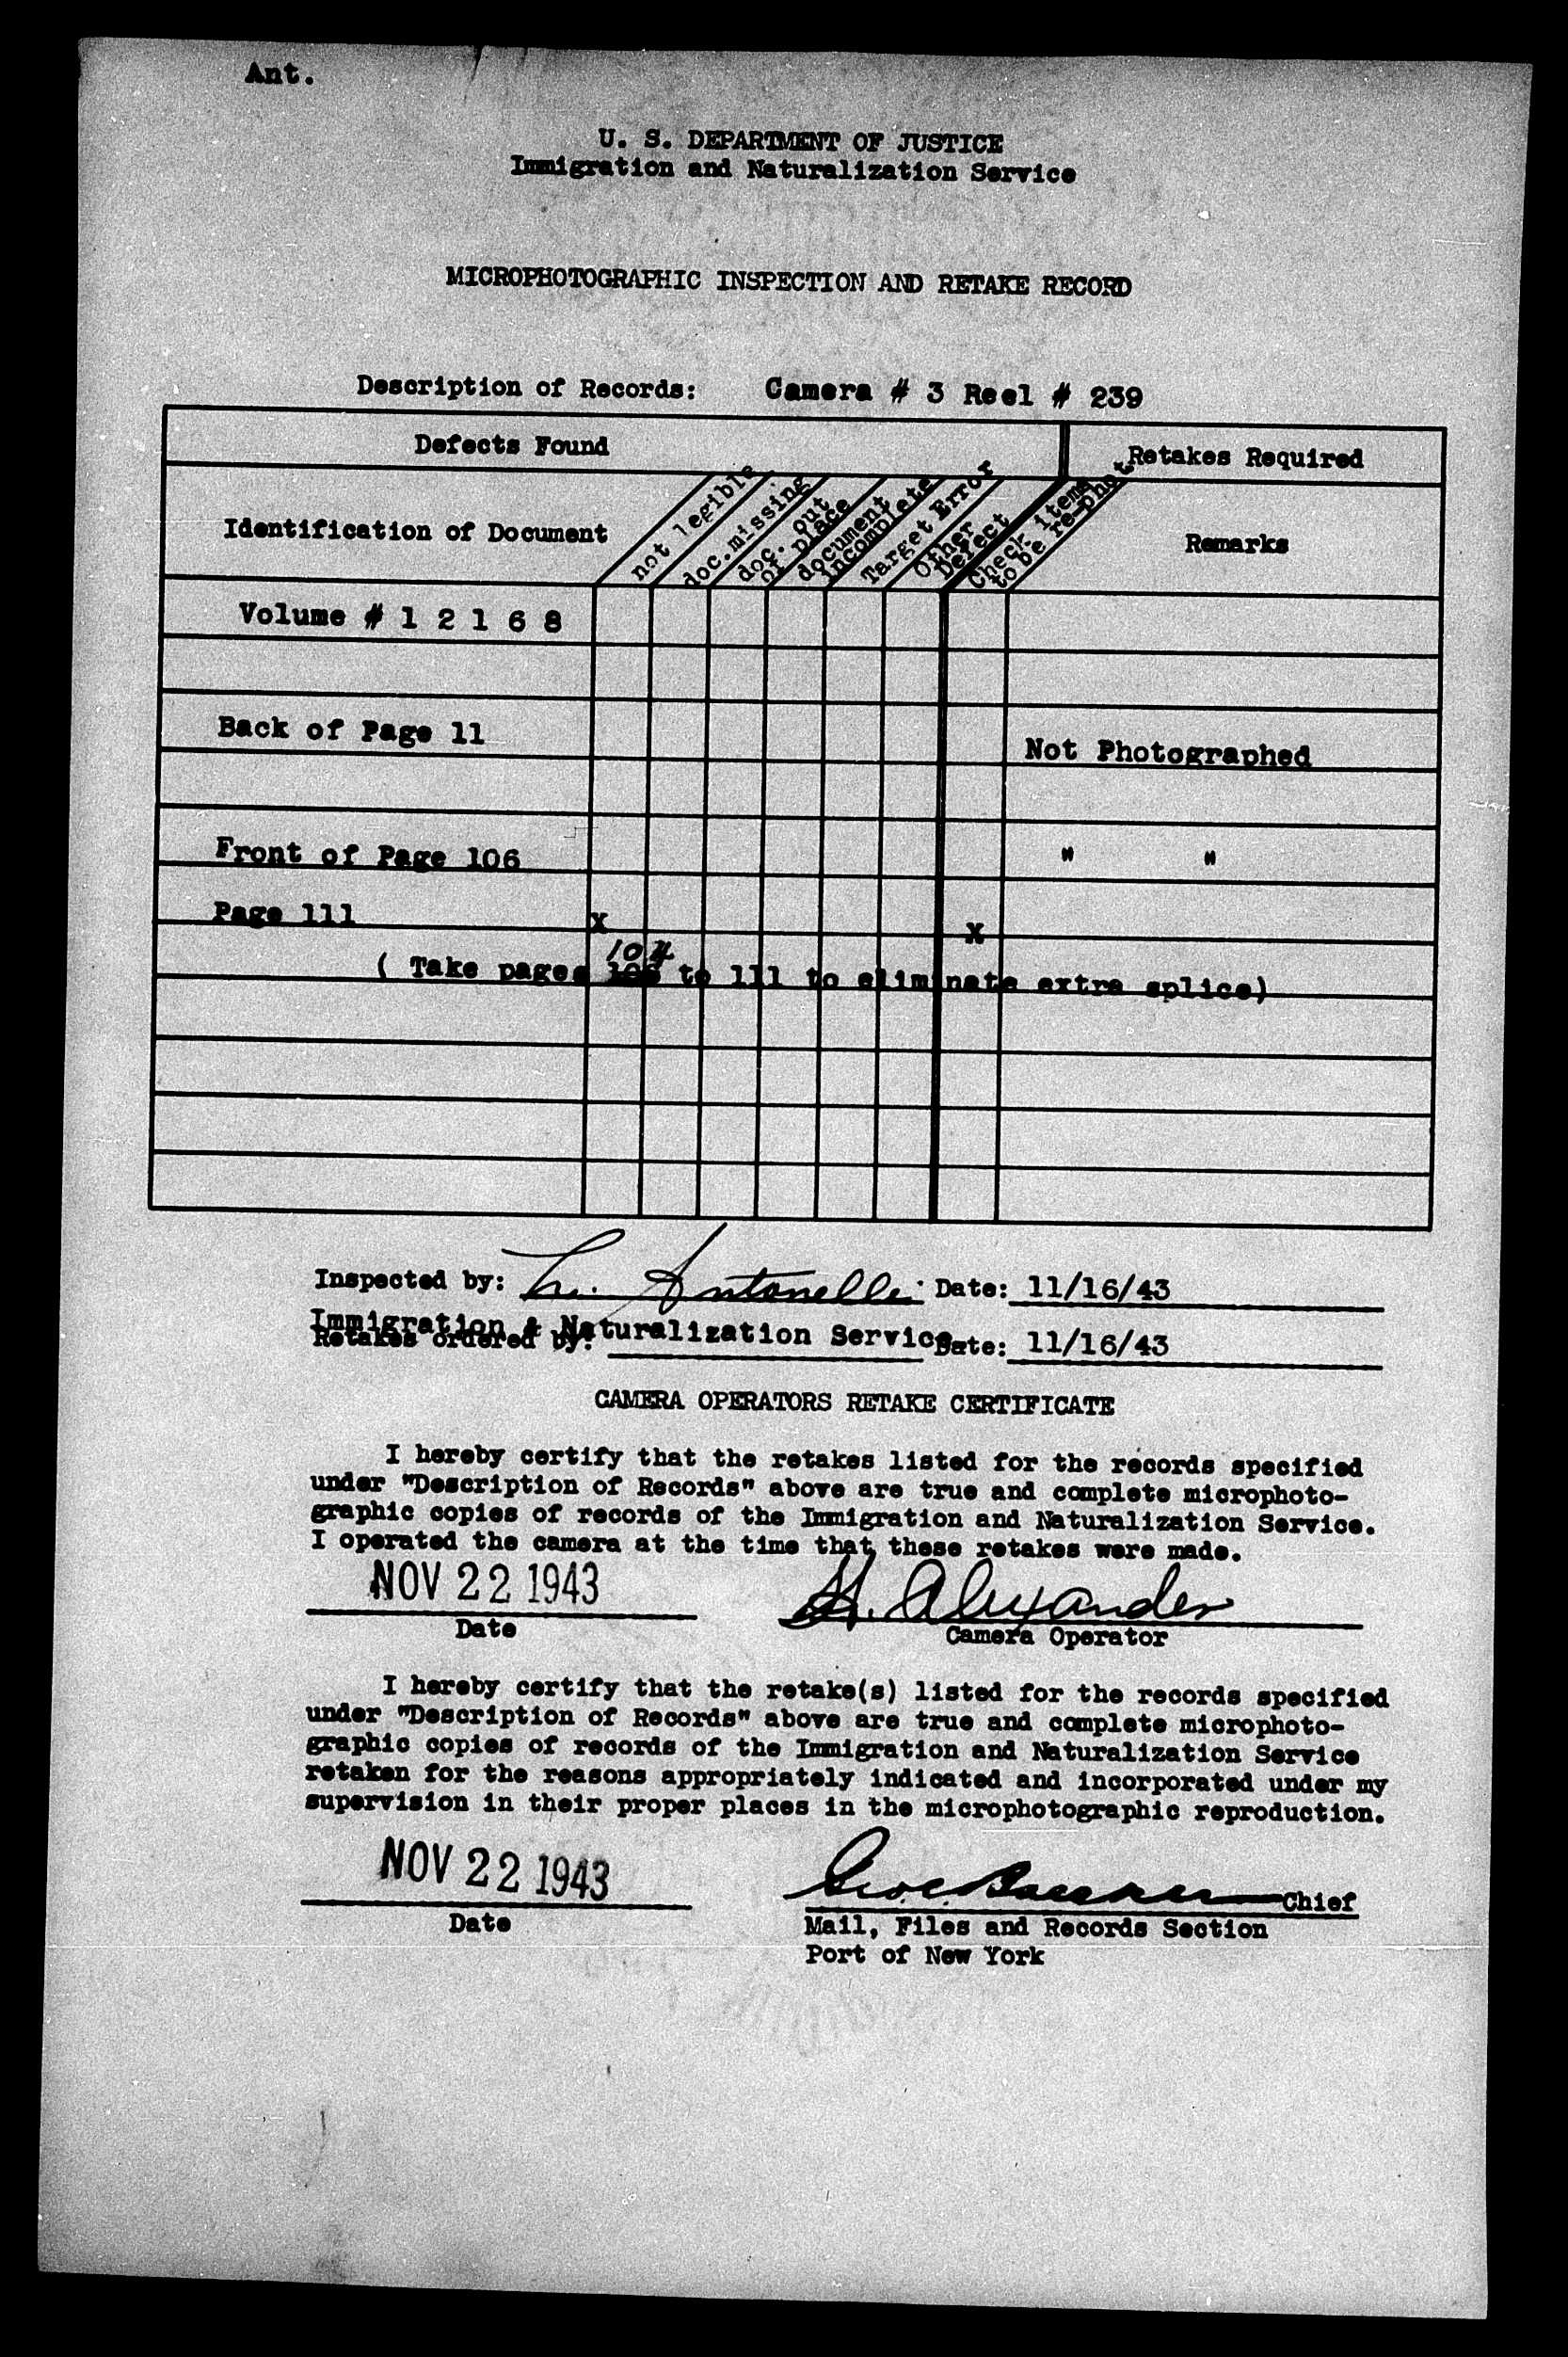 Ant.
U. S. DEPARTMENT OF JUSTICE
Immigration and Naturalization Service
MICROPHOTOGRAPHIC INSPECTION AND RETAKE RECORD
Description of Records: Camera # 3 Reel # 239
Defects Found
Retakes Required
Identification of Document
not legible
doc.missing
doc. out
of place
document
incomplete
Target Error
Other
Defect
Check items
to be re-phot
Remarks
Volume # 1 2 1 6 8
Back of Page 11
Not Photographed
Front of Page 106
" "
Page 111 x x
104
( Take pages 106 to 111 to eliminate extra splice)
Inspected by: L. Antonelli Date: 11/16/43
Immigration & Naturalization Service
Retakes ordered by: Date: 11/16/43
CAMERA OPERATORS RETAKE CERTIFICATE
I hereby certify that the retakes listed for the records specified
under "Description of Records" above are true and complete microphoto-
graphic copies of records of the Immigration and Naturalization Service.
I operated the camera at the time that these retakes were made.
NOV 22 1943 H. Alexander
Date Camera Operator
I hereby certify that the retake(s) listed for the records specified
under "Description of Records" above are true and complete microphoto-
graphic copies of records of the Immigration and Naturalization Service
retaken for the reasons appropriately indicated and incorporated under my
supervision in their proper places in the microphotographic reproduction.
NOV 22 1943
Chief
Date Mail, Files and Records Section
Port of New York